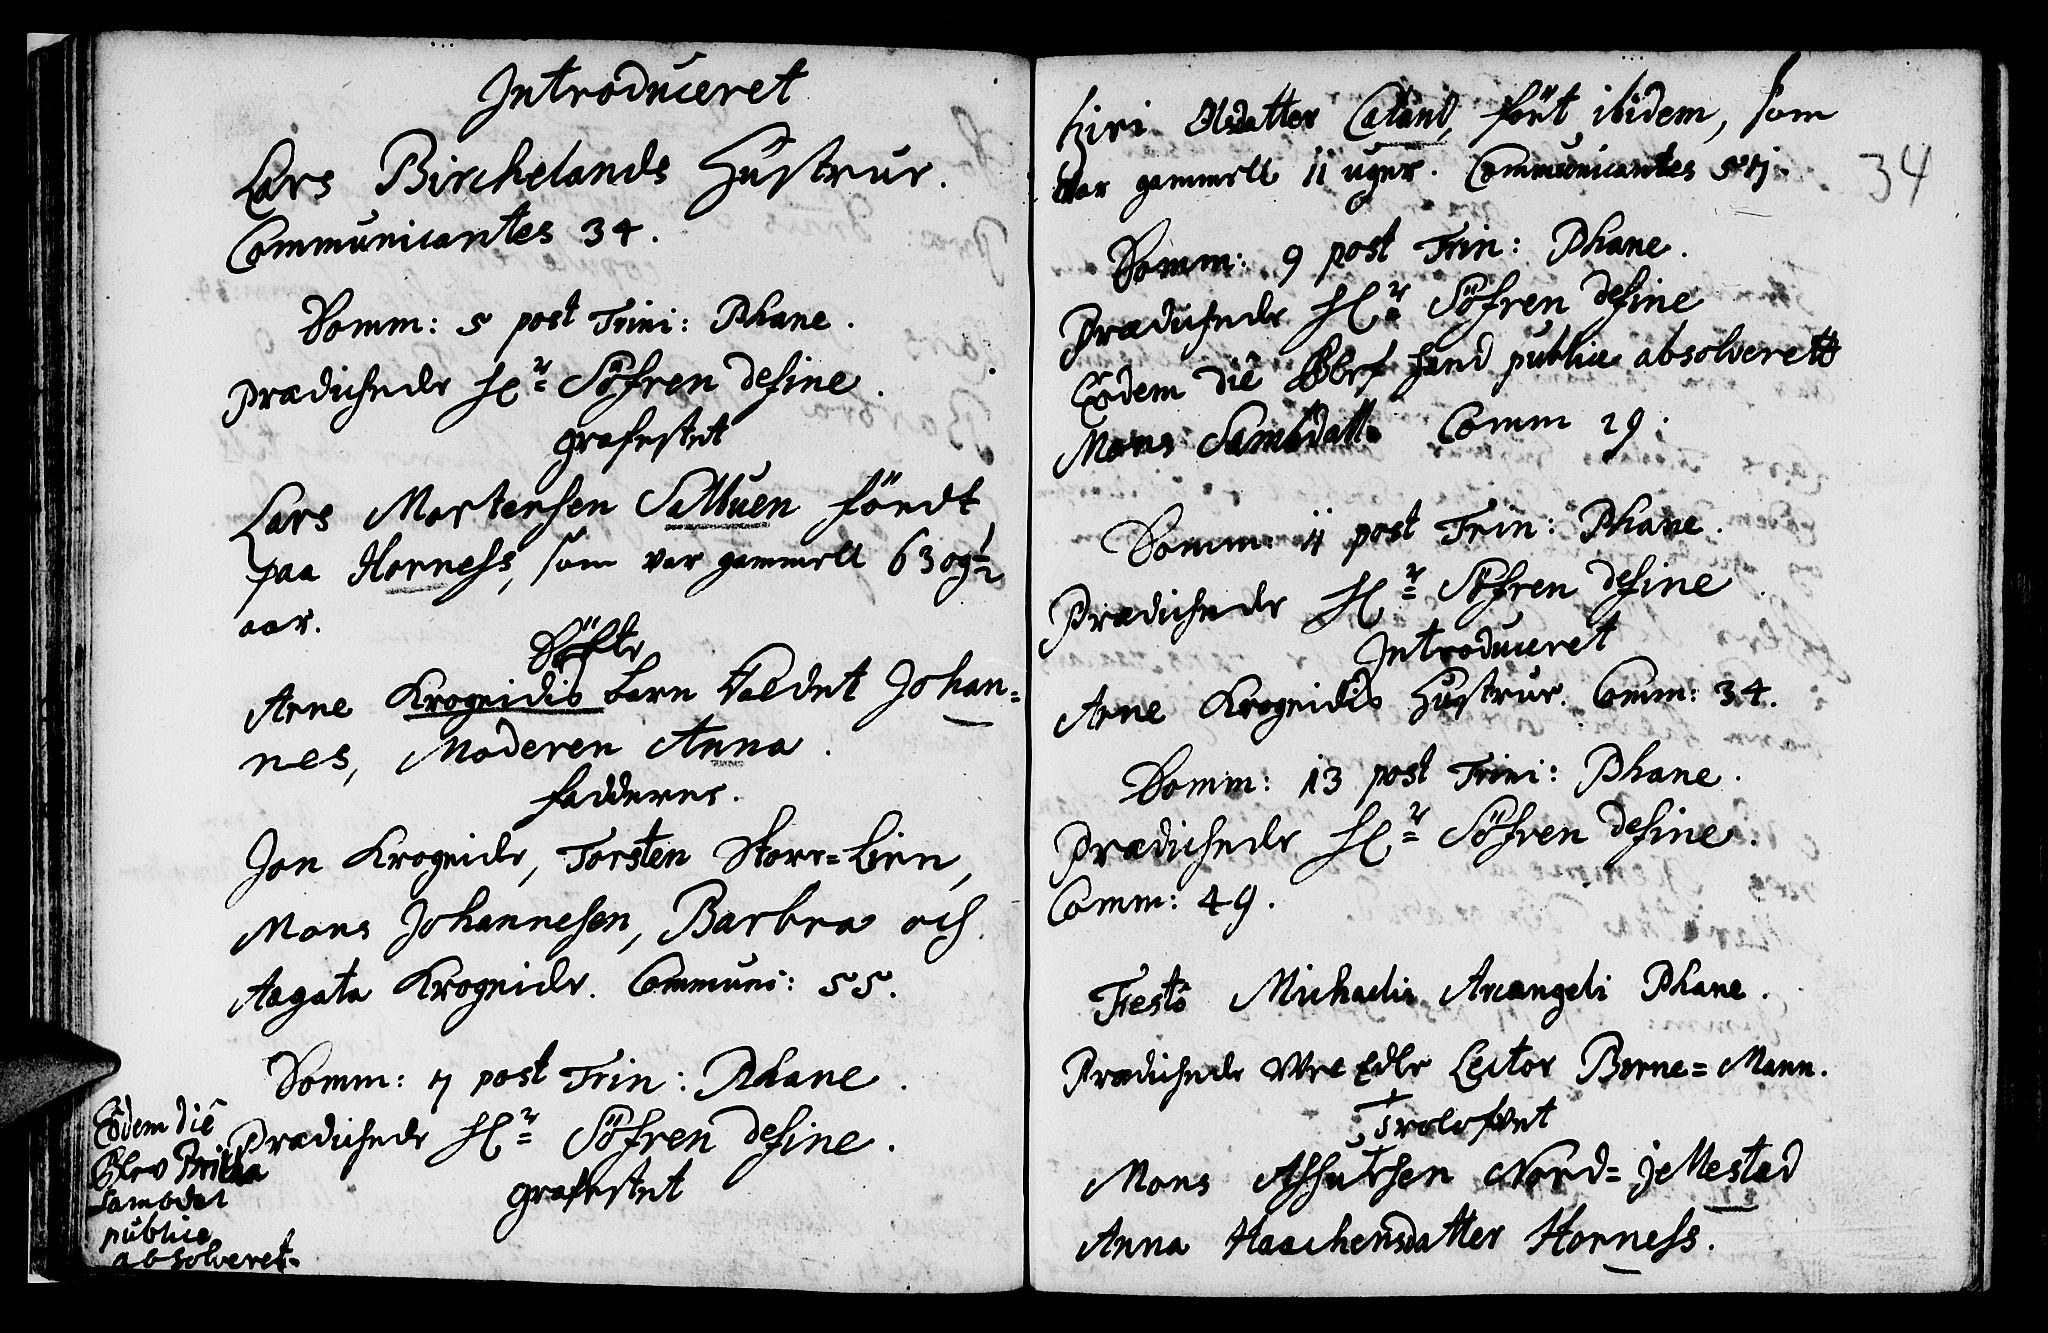 Introduceret
Lars Birchelands Hustrue.
Communicantes 34.
Domm: 5 post Trini: Phane.
Prædichede Hr Söfren Define.
grafestet
Lars Mortensen Saltuen föndt
paa Horness, som var gammell 63 og ½
aar.
Döbte
Arne Krogeidis barn kaldet Johan=
nes, Moderen Anna.
fadderne.
Jon Krogeide, Torsten Store=Lien,
Mons Johannesen, Barbra och
Aagata Krogeide. Communi: 55.
Domm: 7 post Trin: Phane.
Prædichede Hr Söfren Define.
grafestet
Eodem die
blev Britha
Samsdat
publice
absolveret.
34
Siri Olsdatter födt ibidem, som
var gammell 11 uger. Communicantes 57.
Domm: 9 post Trin: Phane.
Prædichede Hr Söfren Define
Eodem die blef hand publice absolverett
Mons Comm 29.
Domm: 11 post Trin: Phane.
Prædichede Hr Söfren Define
Introduceret
Arne Krogeidis Hustrue. Comm: 34.
Domm: 13 post Trini: Phane.
Prædichede Hr Söfren Define.
Comm: 49.
Festo Michaelis Arcangeli Phane.
Prædichede Vore Edle Lector Borne=Mann.
Trolofvet
Mons Nord=jellestad
Anna Haachensdatter Horness.